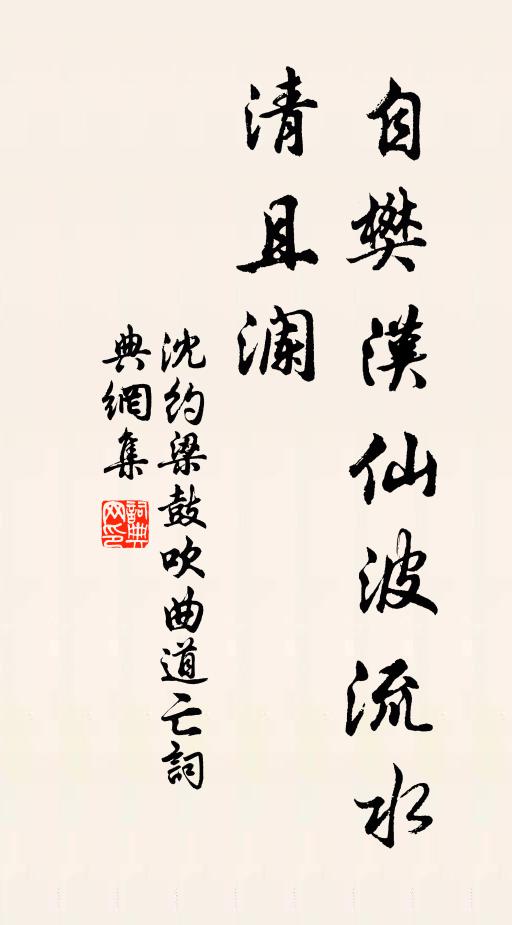 自樊漢仙波流水
清且瀾
沈約梁鼓吹曲道亡詞
典網集
詞典網印